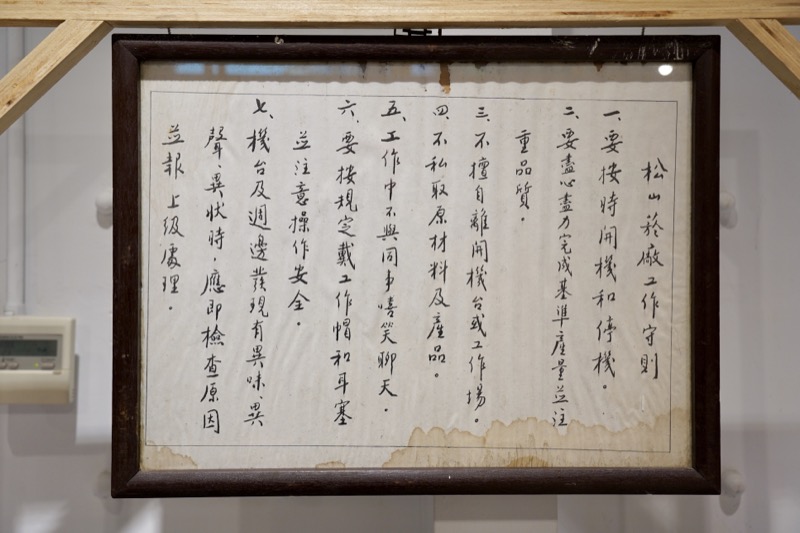 松山菸廠工作守則
一、要按時開機和停機。
二、要盡心盡力完成基準產量並注
重品質。
三、不擅自離開機台或工作場。
四、不私取原材料及產品。
五、工作中不與同事嘻笑聊天。
六、要按規定戴工作帽和耳塞
並注意操作安全。
七、機台及週邊發現有異味、異
聲、異狀時,應即檢查原因
並報上級處理。